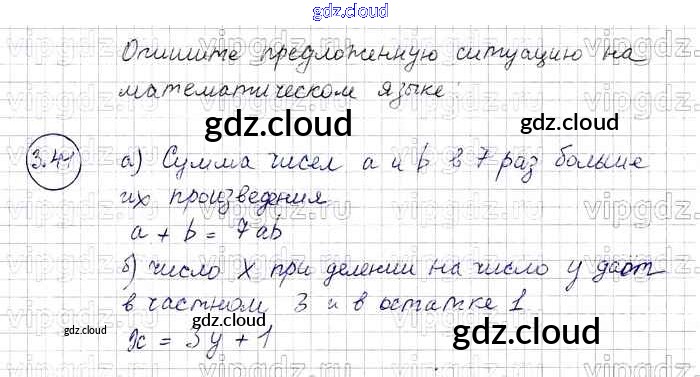 gdz.cloud
Опишите предложенную ситуацию на
математическом языке
gdz.cloud gdz.cloud
3.41 а) Сумма чисел a и b в 7 раз больше
их произведения
a + b = 7ab
б) число X при делении на число y даёт
в частном 3 и в остатке 1
gdz.cloud gdz.cloud gdz.cloud
x = 3y + 1